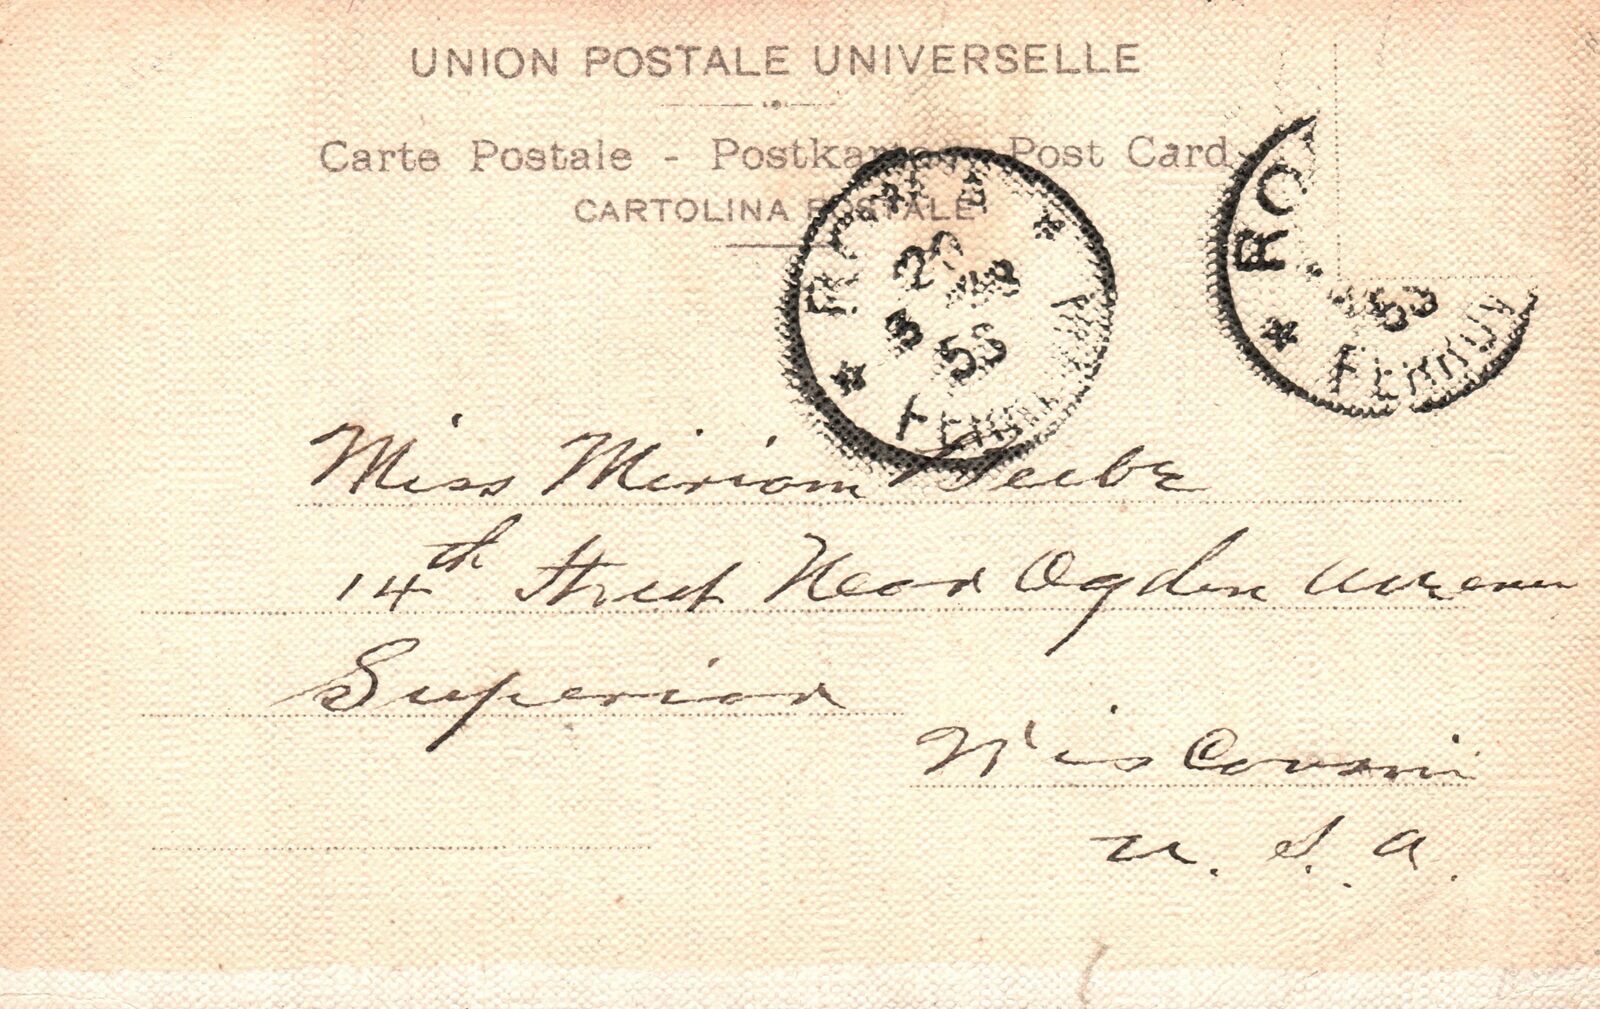 UNION POSTALE UNIVERSELLE
Carte Postale - Postkarte - Post Card
CARTOLINA POSTALE
ROMA
20
3
5S
RO
5S
Miss Miriam Beebe
14th Street Near Ogden Avenue
Superior
Wisconsin
U. S. A.